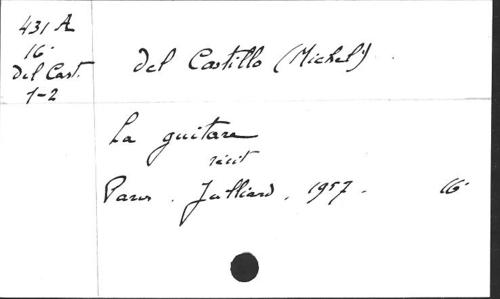 431 A
16°
Del Cast.
1-2
Del Castillo (Michel)
La guitare
récit
Paris. Julliard. 1957. 16°